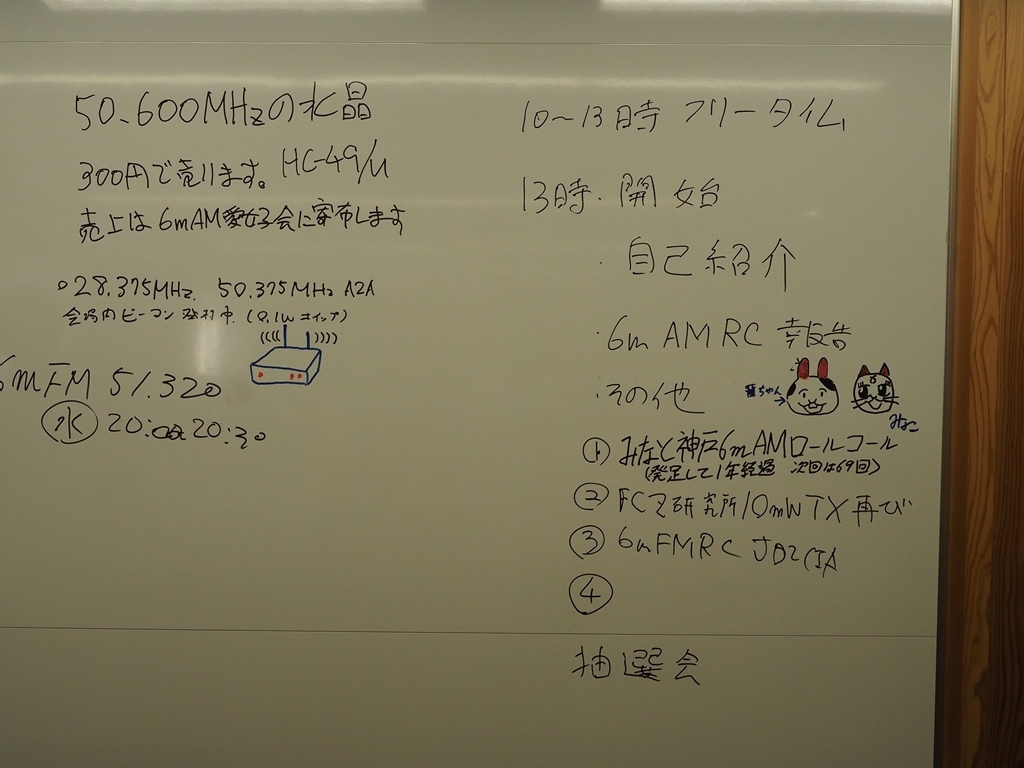 50.600MHzの水晶
300円で売ります。HC-49/U
売上は6mAM愛好会に寄布します
28.375MHz. 50.375MHz A2A
会場内ビーコン 発射中. (0.1W ホイップ)
6mFM 51.320
水 20:00 20:30
10~13時 フリータイム
13時・開始
・自己紹介
・6m AMRC 報告
・その他
ちゃん→
みねこ
① みなと神戸6mAMロールコール
(発足して1年経過 次回は69回)
② FCZ研究所10mW TX 再び
③ 6mFMRC
④
抽選会